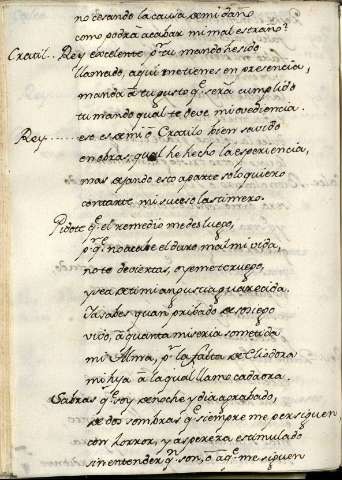 no cesando la causa de mi daño
como podra acabar mi mal estraño?
Cratil.. Rey excelente pr tu mando he sido
llamado, aqui me tienes en presencia,
manda a tu gusto qe. sera cumplido
tu mando qual te deve mi ovediencia.
Rey....... eso es de mi o Cratilo bien savido
en obras, qual he hecho la esperiencia,
mas dejando esto aparte solo quiero
contarte mi suceso lastimero.
Pidote qe. el remedio me des luego,
pr qe. no acabe el duro mal mi vida,
no te detengas, oyeme te ruego,
y sea de ti mi angustia guarecida.
Ya sabes quan privado de sosiego
vivo, a quanta miseria sometida
mi Alma, pr la falta de Eliodora
mi hija a la qual llamo cada ora.
Sabras qe. soy de noche y dia aprabado,
de dos sombras qe. siempre me persiguen
con horror, y aspereza estimulado
sin entender qe. son, o a qe. me siguen